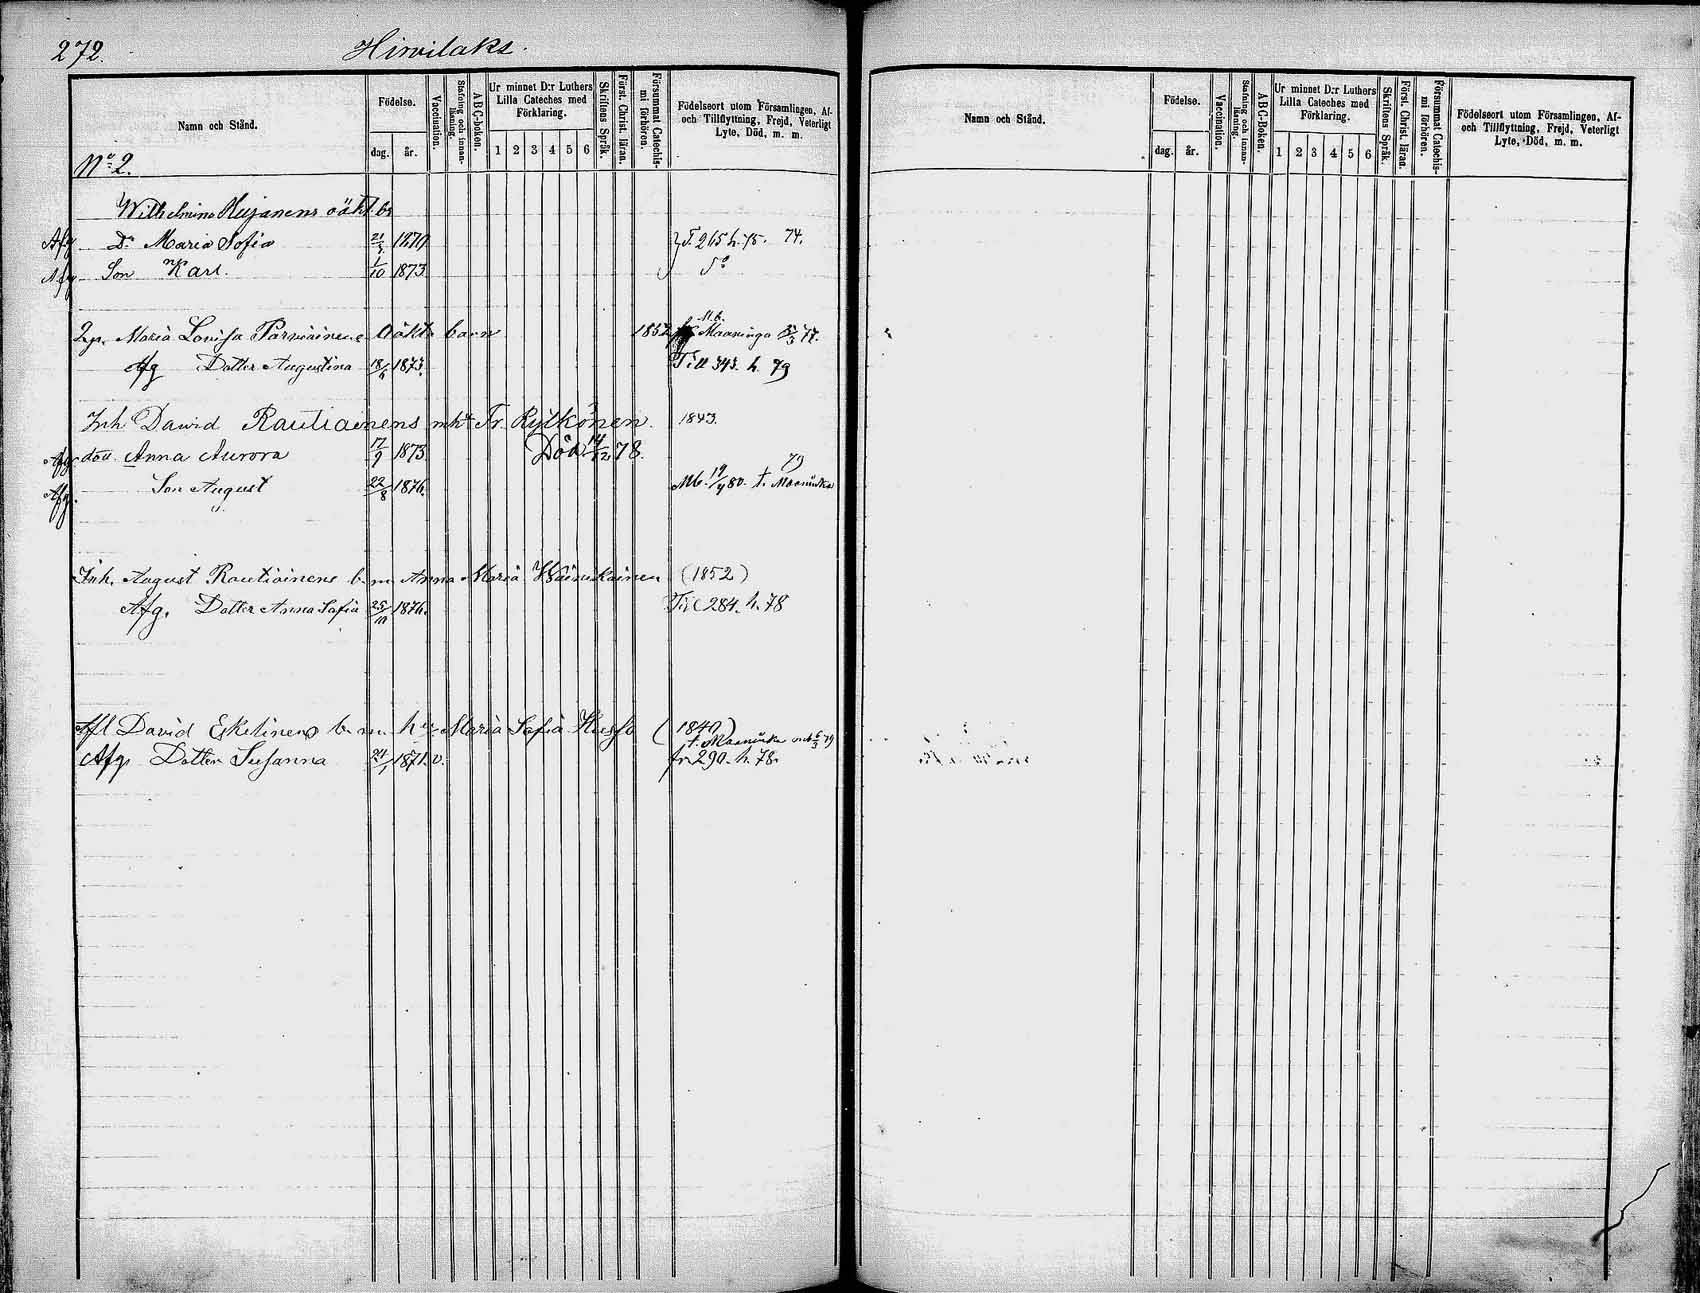 272.
Hirvilaks.
Namn och Stånd.
Födelse.
dag. år.
Vaccination.
Stafning och innanläsning.
A B C-boken.
Ur minnet D:r Luthers Lilla Cateches med Förklaring.
1 2 3 4 5 6
Skriftens Språk.
Först. Christ. läran.
Försummat Catechismi förhören.
Födelseort utom Församlingen, Af- och Tillflyttning, Frejd, Veterligt Lyte, Död, m. m.
No 2.
Wilhelmina Hujanens oäkt. br
Afg Dr Maria Sofia 21/3 1870 T. 265 h. 75. 74.
Afg Son Karl. 1/10 1873 Do
Qp. Maria Lovisa Parviainens oäkta barn 1852 Mb. Maaninga 77.
Afg Dotter Augustina 18/4 1873. Till 343. h. 79
Inh David Rautiainens mht Fr. Rytkönen. 1843.
Afg dott. Anna Aurora 17/9 1873 Död 14/12 78.
Afg. Son August 22/8 1876. Mb. 19/4 80. t. Maaninka 79
Inh. August Rautiainens b. m. Anna Maria Väänikainen (1852)
Afg. Dotter Anna Sofia 25/10 1876. Till 284. h. 78
Afl David Eskelinens b. m. hu Maria Sofia (1840)
t. Maaninka mb 6/3 79
Afg. Dotter Susanna 24/1 1871. v. fr. 290. h. 78.
Namn och Stånd.
Födelse.
dag. år.
Vaccination.
Stafning och innanläsning.
A B C-Boken.
Ur minnet D:r Luthers Lilla Cateches med Förklaring.
1 2 3 4 5 6
Skriftens Språk.
Först. Christ. läran.
Försummat Catechismi förhören.
Födelseort utom Församlingen, Af- och Tillflyttning, Frejd, Veterligt Lyte, Död, m. m.